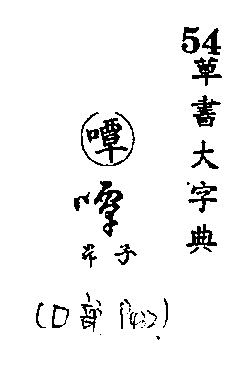 54
草書大字典
嘾
嘾
芾子
(口部